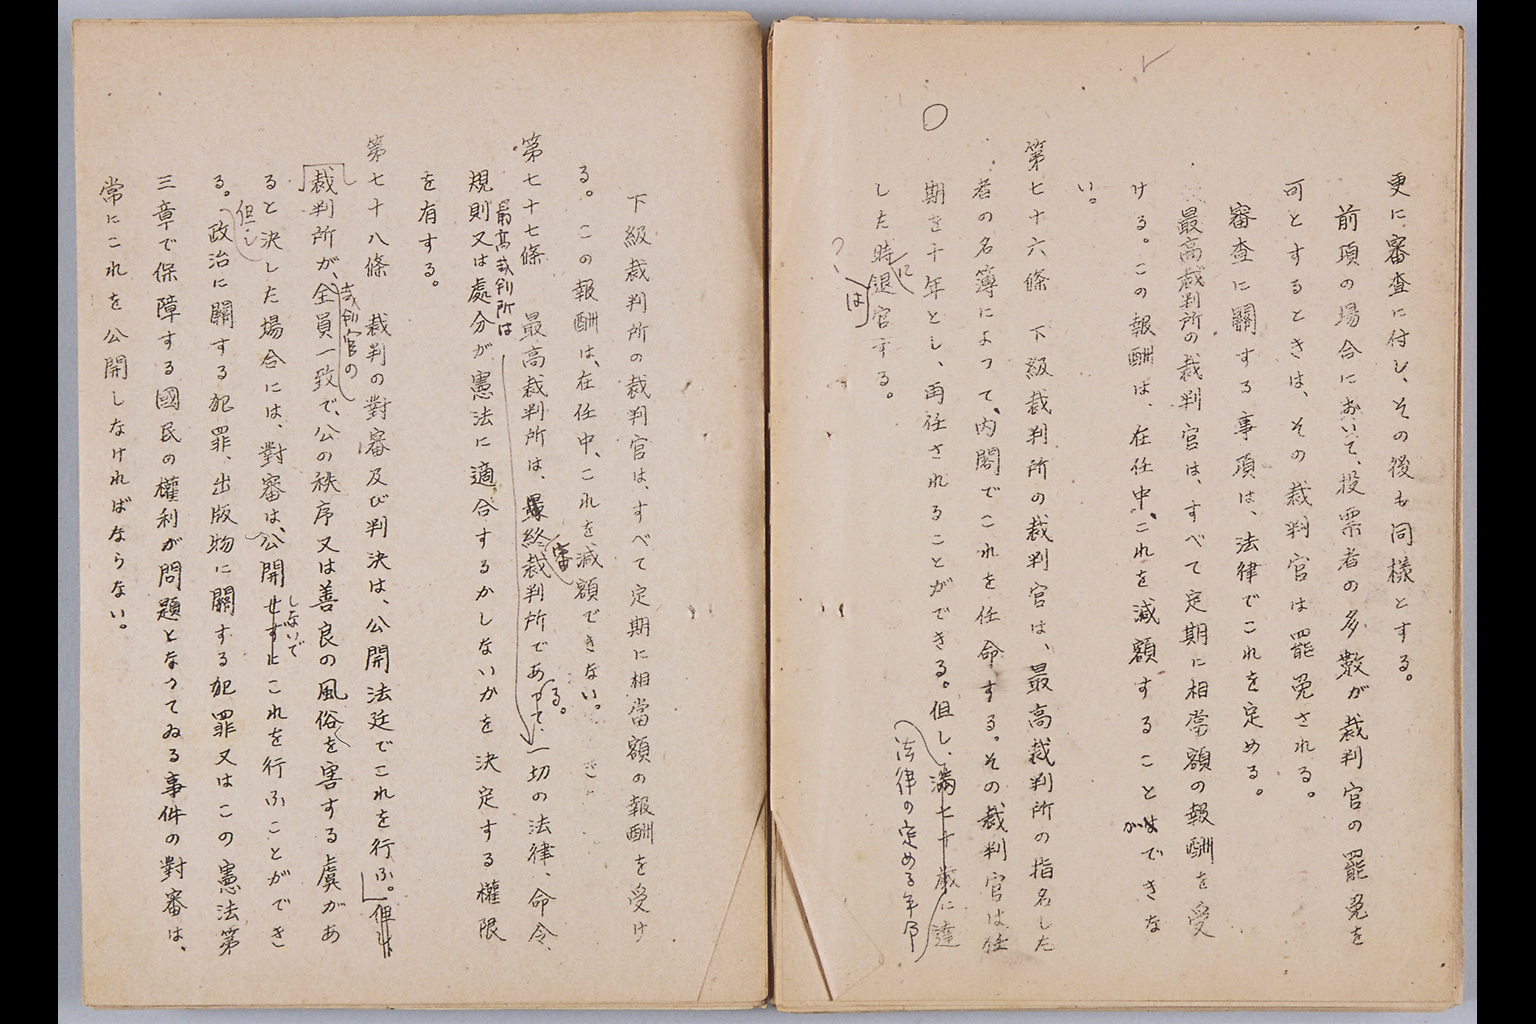 更に審査に付し、その後も同樣とする。
前項の場合において、投票者の多數が裁判官の罷免を
可とするときは、その裁判官は罷免される。
審査に關する事項は、法律でこれを定める。
最高裁判所の裁判官は、すべて定期に相當額の報酬を受
ける。この報酬は、在任中、これを減額することはできな
が
い。
第七十六條　下級裁判所の裁判官は、最高裁判所の指名した
者の名簿によつて、内閣でこれを任命する。その裁判官は任
期を十年とし、再任されることができる。但し、滿七十歳に達
法律の定める年令
した時退官する。
に
は
?
下級裁判所の裁判官は、すべて定期に相當額の報酬を受け
る。この報酬は、在任中、これを減額できない。
第七十七條　最高裁判所は、最終裁判所であつて、一切の法律、命令、
審
る。
最高裁判所は
規則又は處分が憲法に適合するかしないかを決定する權限
を有する。
第七十八條　裁判の對審及び判決は、公開法廷でこれを行ふ。但し、
裁判官の
裁判所が、全員一致で、公の秩序又は善良の風俗を害する虞があ
ると決した場合には、對審は、公開せずにこれを行ふことができ
しないで
但し
る。政治に關する犯罪、出版物に關する犯罪又はこの憲法第
三章で保障する國民の權利が問題となつてゐる事件の對審は、
常にこれを公開しなければならない。